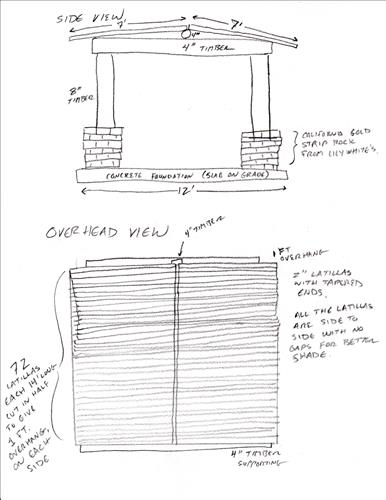 SIDE VIEW
7'
7'
4"
4" TIMBER
8"
TIMBER
CALIFORNIA GOLD
STRIP ROCK
FROM LILY WHITE'S.
CONCRETE FOUNDATION (SLAB ON GRADE)
12'
OVERHEAD VIEW
4" TIMBER
1 FT
OVERHANG
2" LATILLAS
WITH TAPERED
ENDS.
ALL THE LATILLAS
ARE SIDE TO
SIDE WITH NO
GAPS FOR BETTER
SHADE.
72
LATILLAS
EACH 14' LONG
CUT IN HALF
TO GIVE
1 FT.
OVERHANG
ON EACH
SIDE
4" TIMBER
SUPPORTING